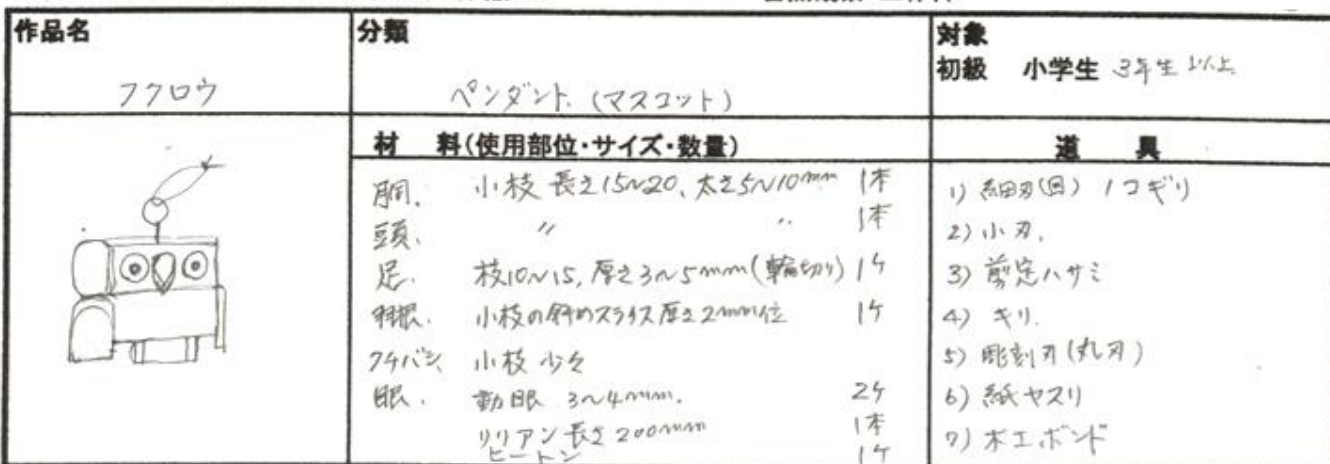 作品名
フクロウ
分類
ペンダント.(マスコット)
対象
初級 小学生 3年生以上
材 料(使用部位・サイズ・数量)
胴. 小枝 長さ15~20、太さ5~10mm 1本
頭、 〃 〃 1本
足. 枝10~15, 厚さ3~5mm(輪切り) 1ケ
羽根. 小枝の斜めスライス厚さ2mm位 1ケ
クチバシ、小枝 少々
眼. 動眼 3~4mm. 2ケ
リリアン長さ200mm 1本
ヒートン 1ケ
道 具
1) 細刃(目)ノコギリ
2) 小刀.
3) 剪定ハサミ
4) キリ.
5) 彫刻刀(丸刃)
6) 紙ヤスリ
7) 木工ボンド